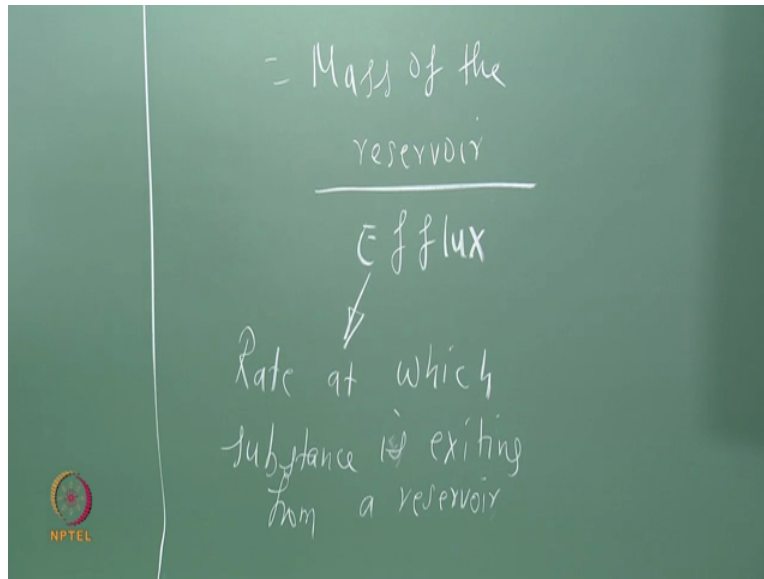 = Mass of the
reservoir
Efflux
Rate at which
substance is exiting
from a reservoir
NPTEL